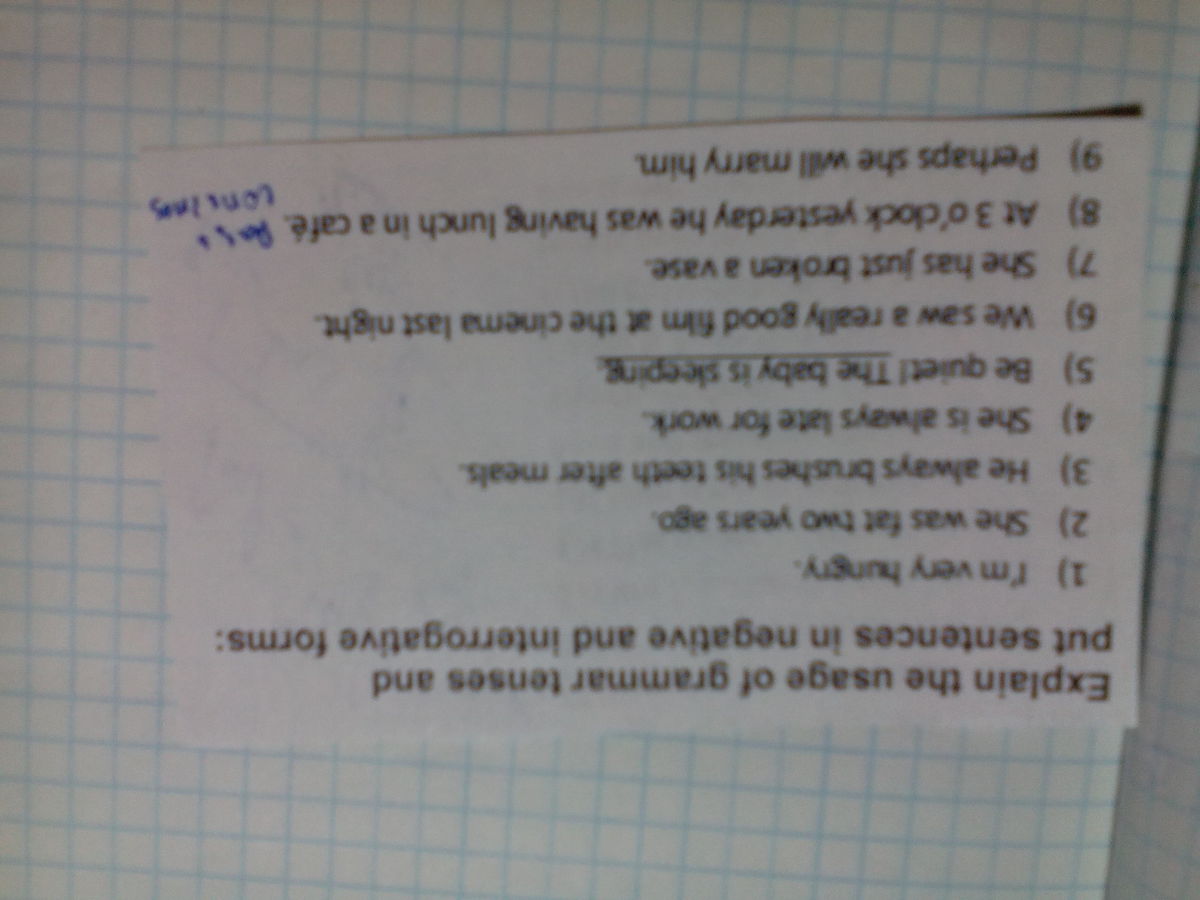 Explain the usage of grammar tenses and
put sentences in negative and interrogative forms:
1) I'm very hungry.
2) She was fat two years ago.
3) He always brushes his teeth after meals.
4) She is always late for work.
5) Be quiet! The baby is sleeping.
6) We saw a really good film at the cinema last night.
7) She has just broken a vase.
8) At 3 o'clock yesterday he was having lunch in a café.
9) Perhaps she will marry him.